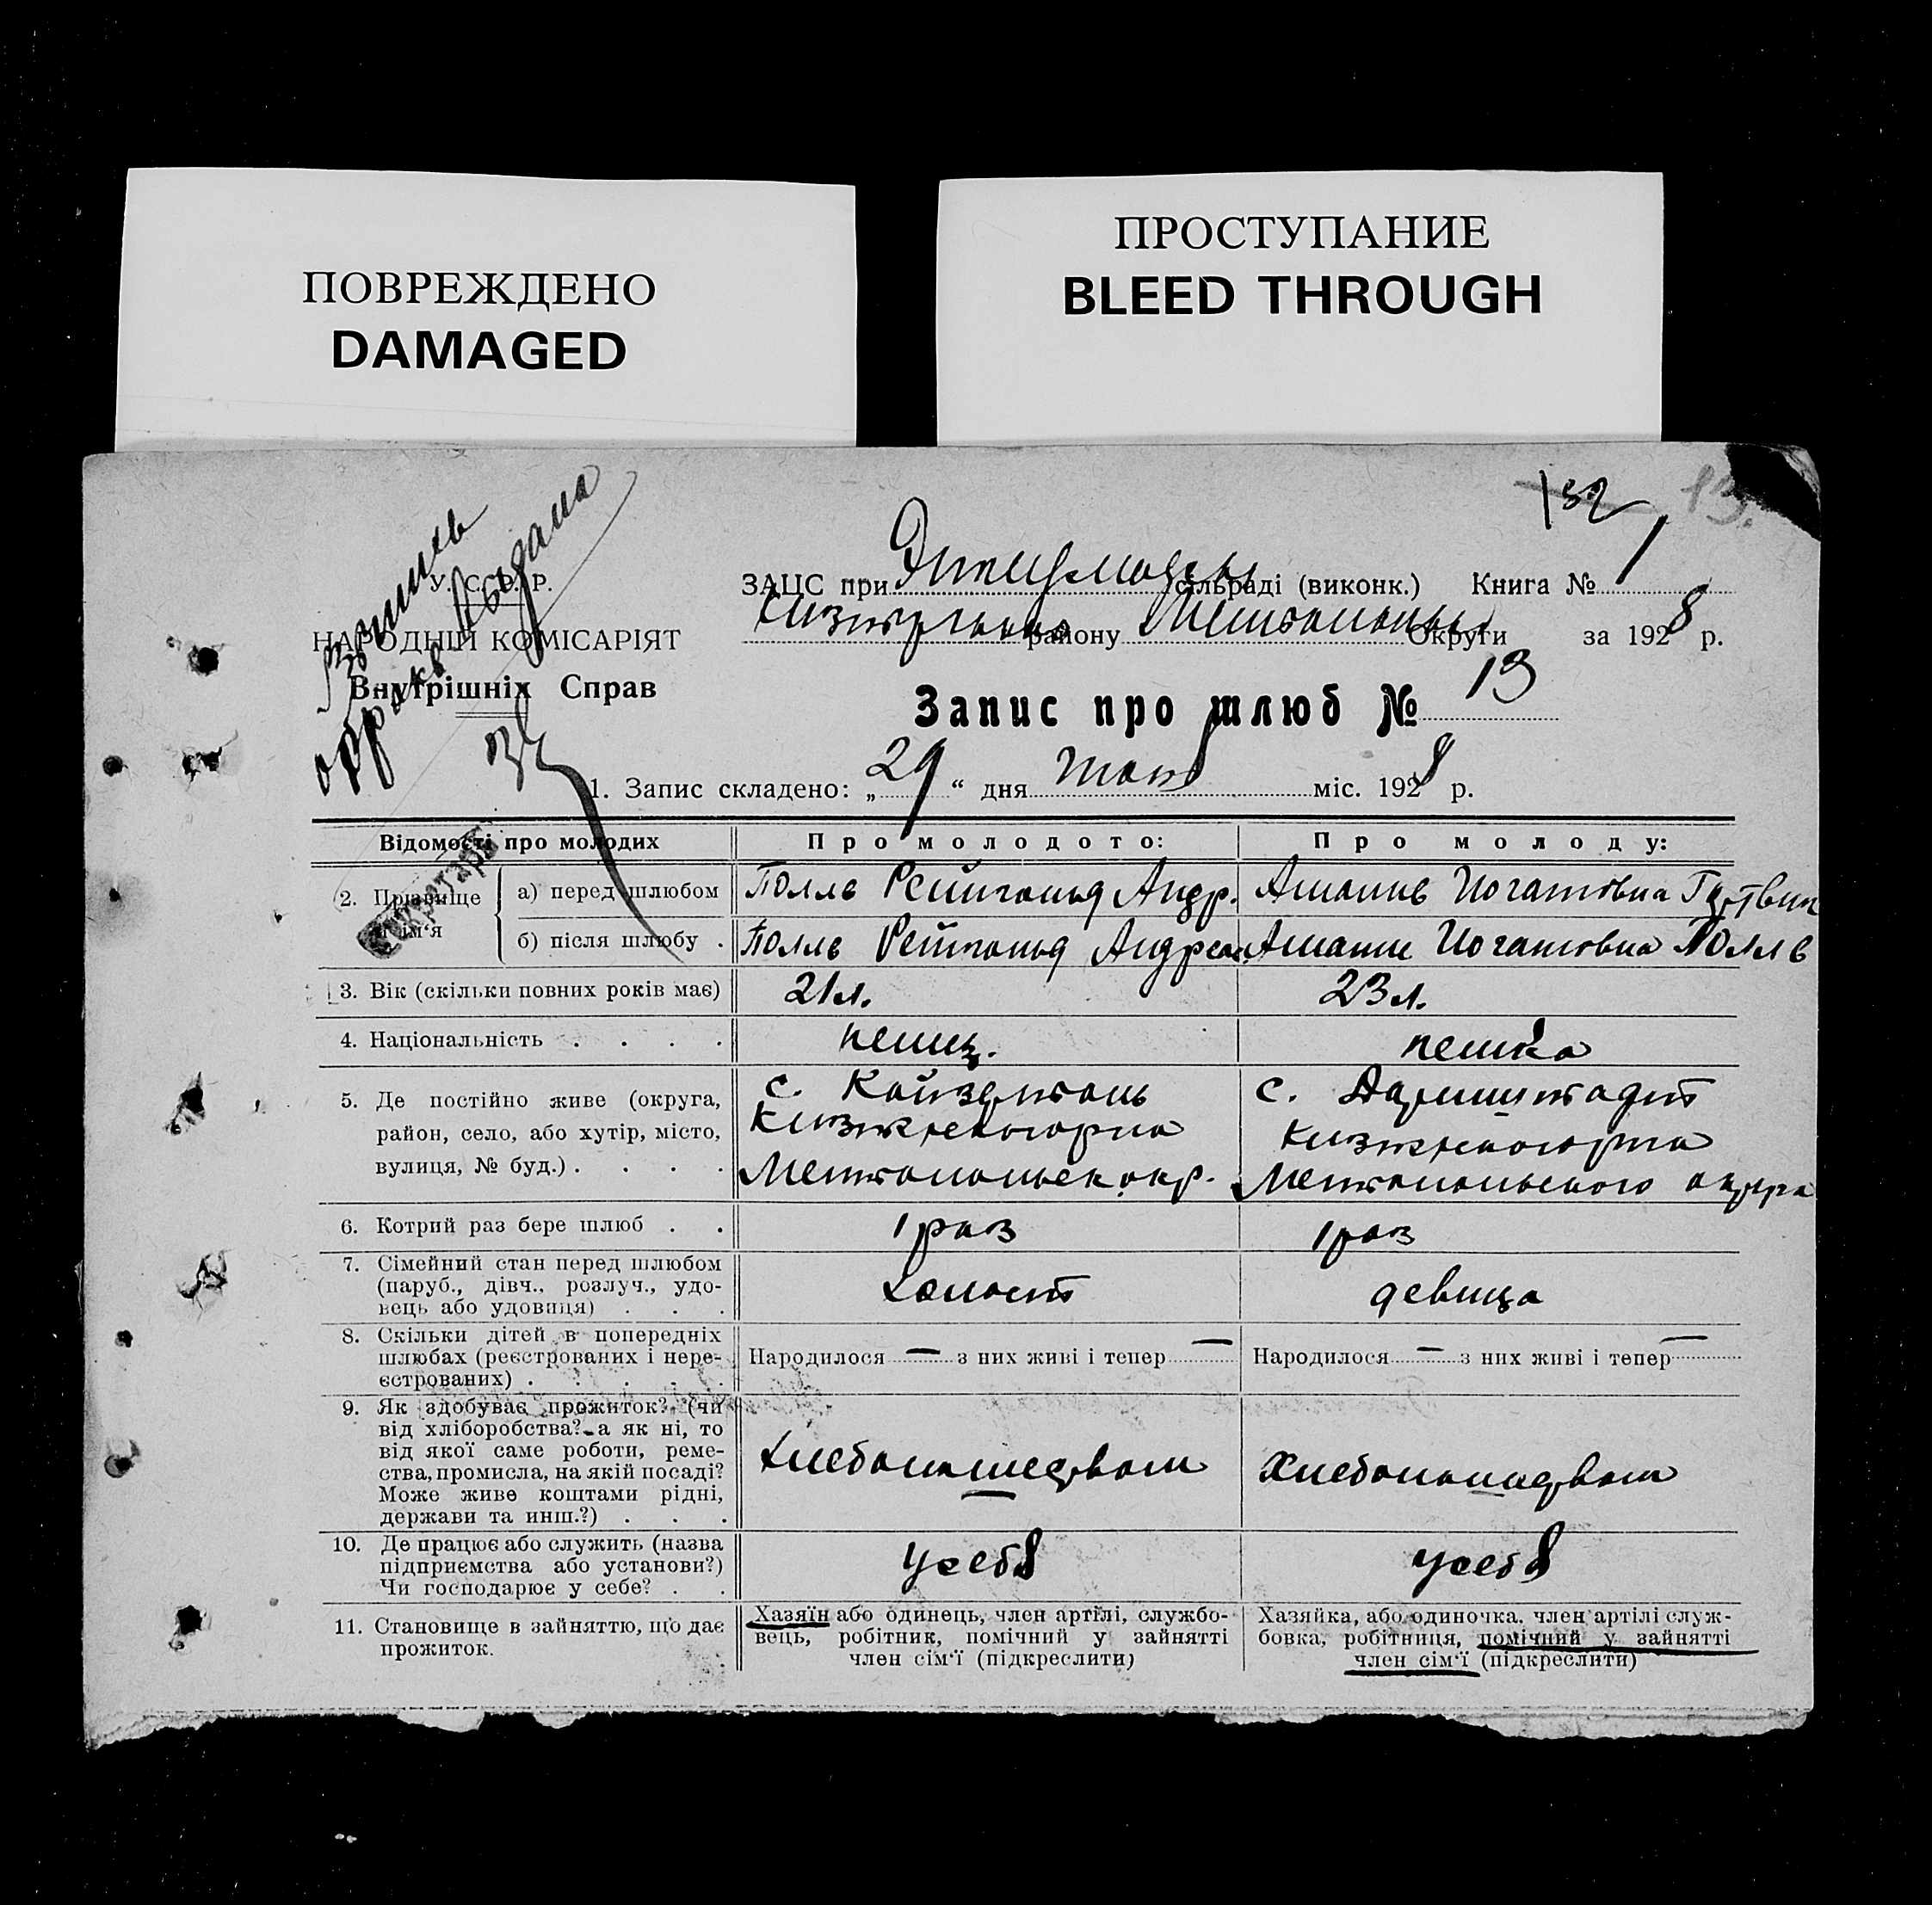 ПОВРЕЖДЕНО
DAMAGED
ПРОСТУПАНИЕ
BLEED THROUGH
132
13.
выдана
У. С. Р. Р.
НАРОДНІЙ КОМІСАРІЯТ
Внутрішніх Справ
ЗАЦС при сільраді (виконк.) Книга № 1
району Округи за 1928 р.
Запис про шлюб № 13
1. Запис складено: „29“ дня міс. 1928 р.
Відомості про молодих
Про молодого:
Про молоду:
2. Прізвище й ім'я
а) перед шлюбом
Полль Рейнгольд Андр.
Иогановна
б) після шлюбу .
Полль Рейнгольд
Иогановна Полль
3. Вік (скільки повних років має)
21 л.
23 л.
4. Національність . . . .
немец.
немка
5. Де постійно живе (округа,
район, село, або хутір, місто,
вулиця, № буд.) . . . .
с. Кайзерталь
Мелитопольск. окр.
с. Дармштадт
Мелитопольского округа
6. Котрий раз бере шлюб . .
1 раз
1 раз
7. Сімейний стан перед шлюбом
(паруб., дівч., розлуч., удо-
вець або удовиця) . . .
холост
девица
8. Скільки дітей в попередніх
шлюбах (реєстрованих і нере-
єстрованих) . . . . .
Народилося — з них живі і тепер —
Народилося — з них живі і тепер —
9. Як здобуває прожиток? (чи
від хліборобства? а як ні, то
від якої саме роботи, реме-
ства, промисла, на якій посаді?
Може живе коштами рідні,
держави та инш.?) . . .
хлебопашеством
Хлебопашеством
10. Де працює або служить (назва
підприємства або установи?)
Чи господарює у себе? . .
у себя
у себя
11. Становище в зайняттю, що дає
прожиток.
Хазяїн або одинець, член артілі, службо-
вець, робітник, помічний у зайнятті
член сім'ї (підкреслити)
Хазяйка, або одиночка, член артілі служ-
бовка, робітниця, помічний у зайнятті
член сім'ї (підкреслити)